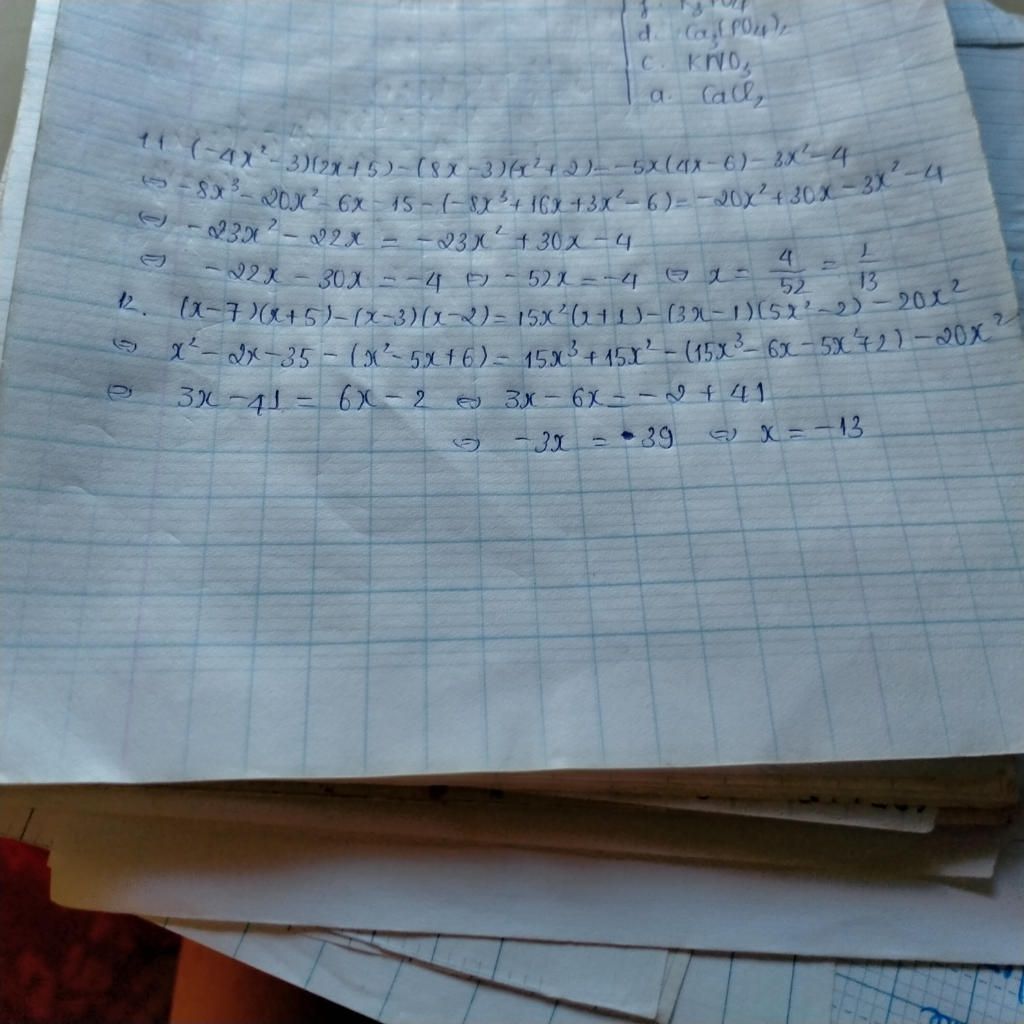 d. Ca₃(PO₄)₂
c. KNO₃
a. CaCl₂
11 (-4x²-3)(2x+5)-(8x-3)(x²+2)=-5x(4x-6)-3x²-4
⇔ -8x³-20x²-6x-15-(-8x³+16x+3x²-6)=-20x²+30x-3x²-4
⇔ -23x²-22x = -23x²+30x-4
⇔ -22x-30x=-4 ⇔ -52x=-4 ⇔ x = 4/52 = 1/13
12. (x-7)(x+5)-(x-3)(x-2)=15x²(x+1)-(3x-1)(5x²-2)-20x²
⇔ x²-2x-35-(x²-5x+6)=15x³+15x²-(15x³-6x-5x²+2)-20x²
⇔ 3x-41 = 6x-2 ⇔ 3x-6x=-2+41
⇔ -3x = 39 ⇔ x = -13